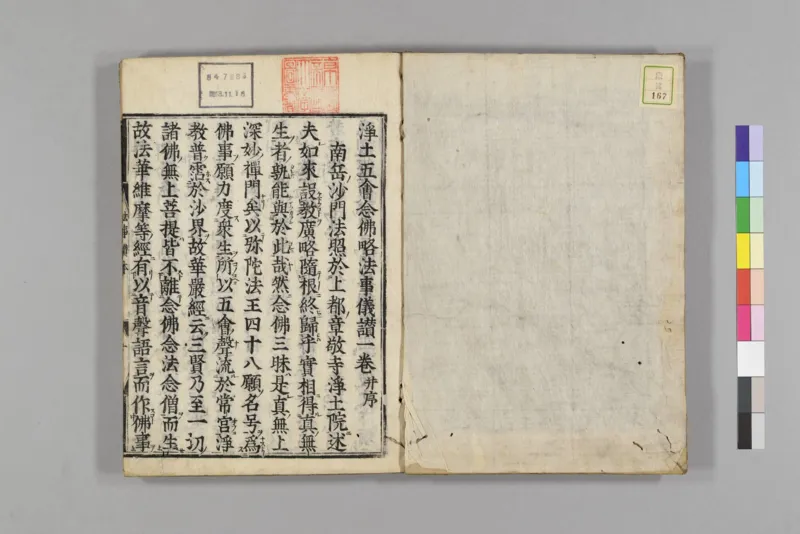 淨土五會念佛略法事儀讃一卷 并序
南岳沙門法照於上都章敬寺淨土院述
夫如來設教廣略隨根終歸乎實相得真無
生者孰能與於此哉然念佛三昧是真無上
深妙禪門矣以弥陀法王四十八願名号爲
佛事願力度衆生所以五會聲流於常宮淨
教普霑於沙界故華嚴經云三賢乃至一切
諸佛無上菩提皆不離念佛念法念僧而生
故法華維摩等經有以音聲語言而作佛事
167